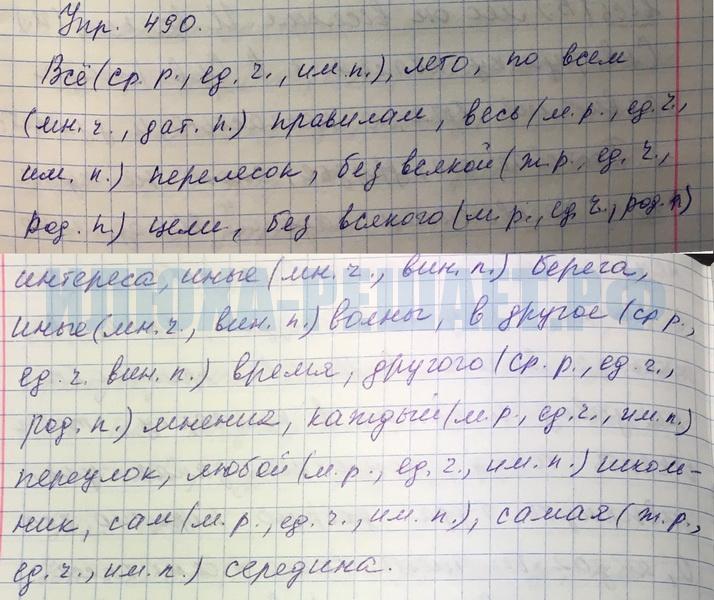 Упр. 490.
Всё (ср. р., ед. ч., им. п.), лето, по всем
(мн. ч., дат. п.) правилам, весь (м. р., ед. ч.,
им. п.) перелесок, без всякой (ж. р., ед. ч.,
род. п.) цели, без всякого (м. р., ед. ч., род. п)
интереса, иные (мн. ч., вин. п.) берега,
иные (мн. ч., вин. п.) волны, в другое (ср р.,
ед. ч. вин. п.) время, другого (ср. р., ед. ч.,
род. п.) мнения, каждый (м. р., ед. ч., им. п.)
переулок, любой (м. р., ед. ч., им. п.) школь-
ник, сам (м. р., ед. ч., им. п.), самая (ж. р.,
ед. ч., им. п.) середина.